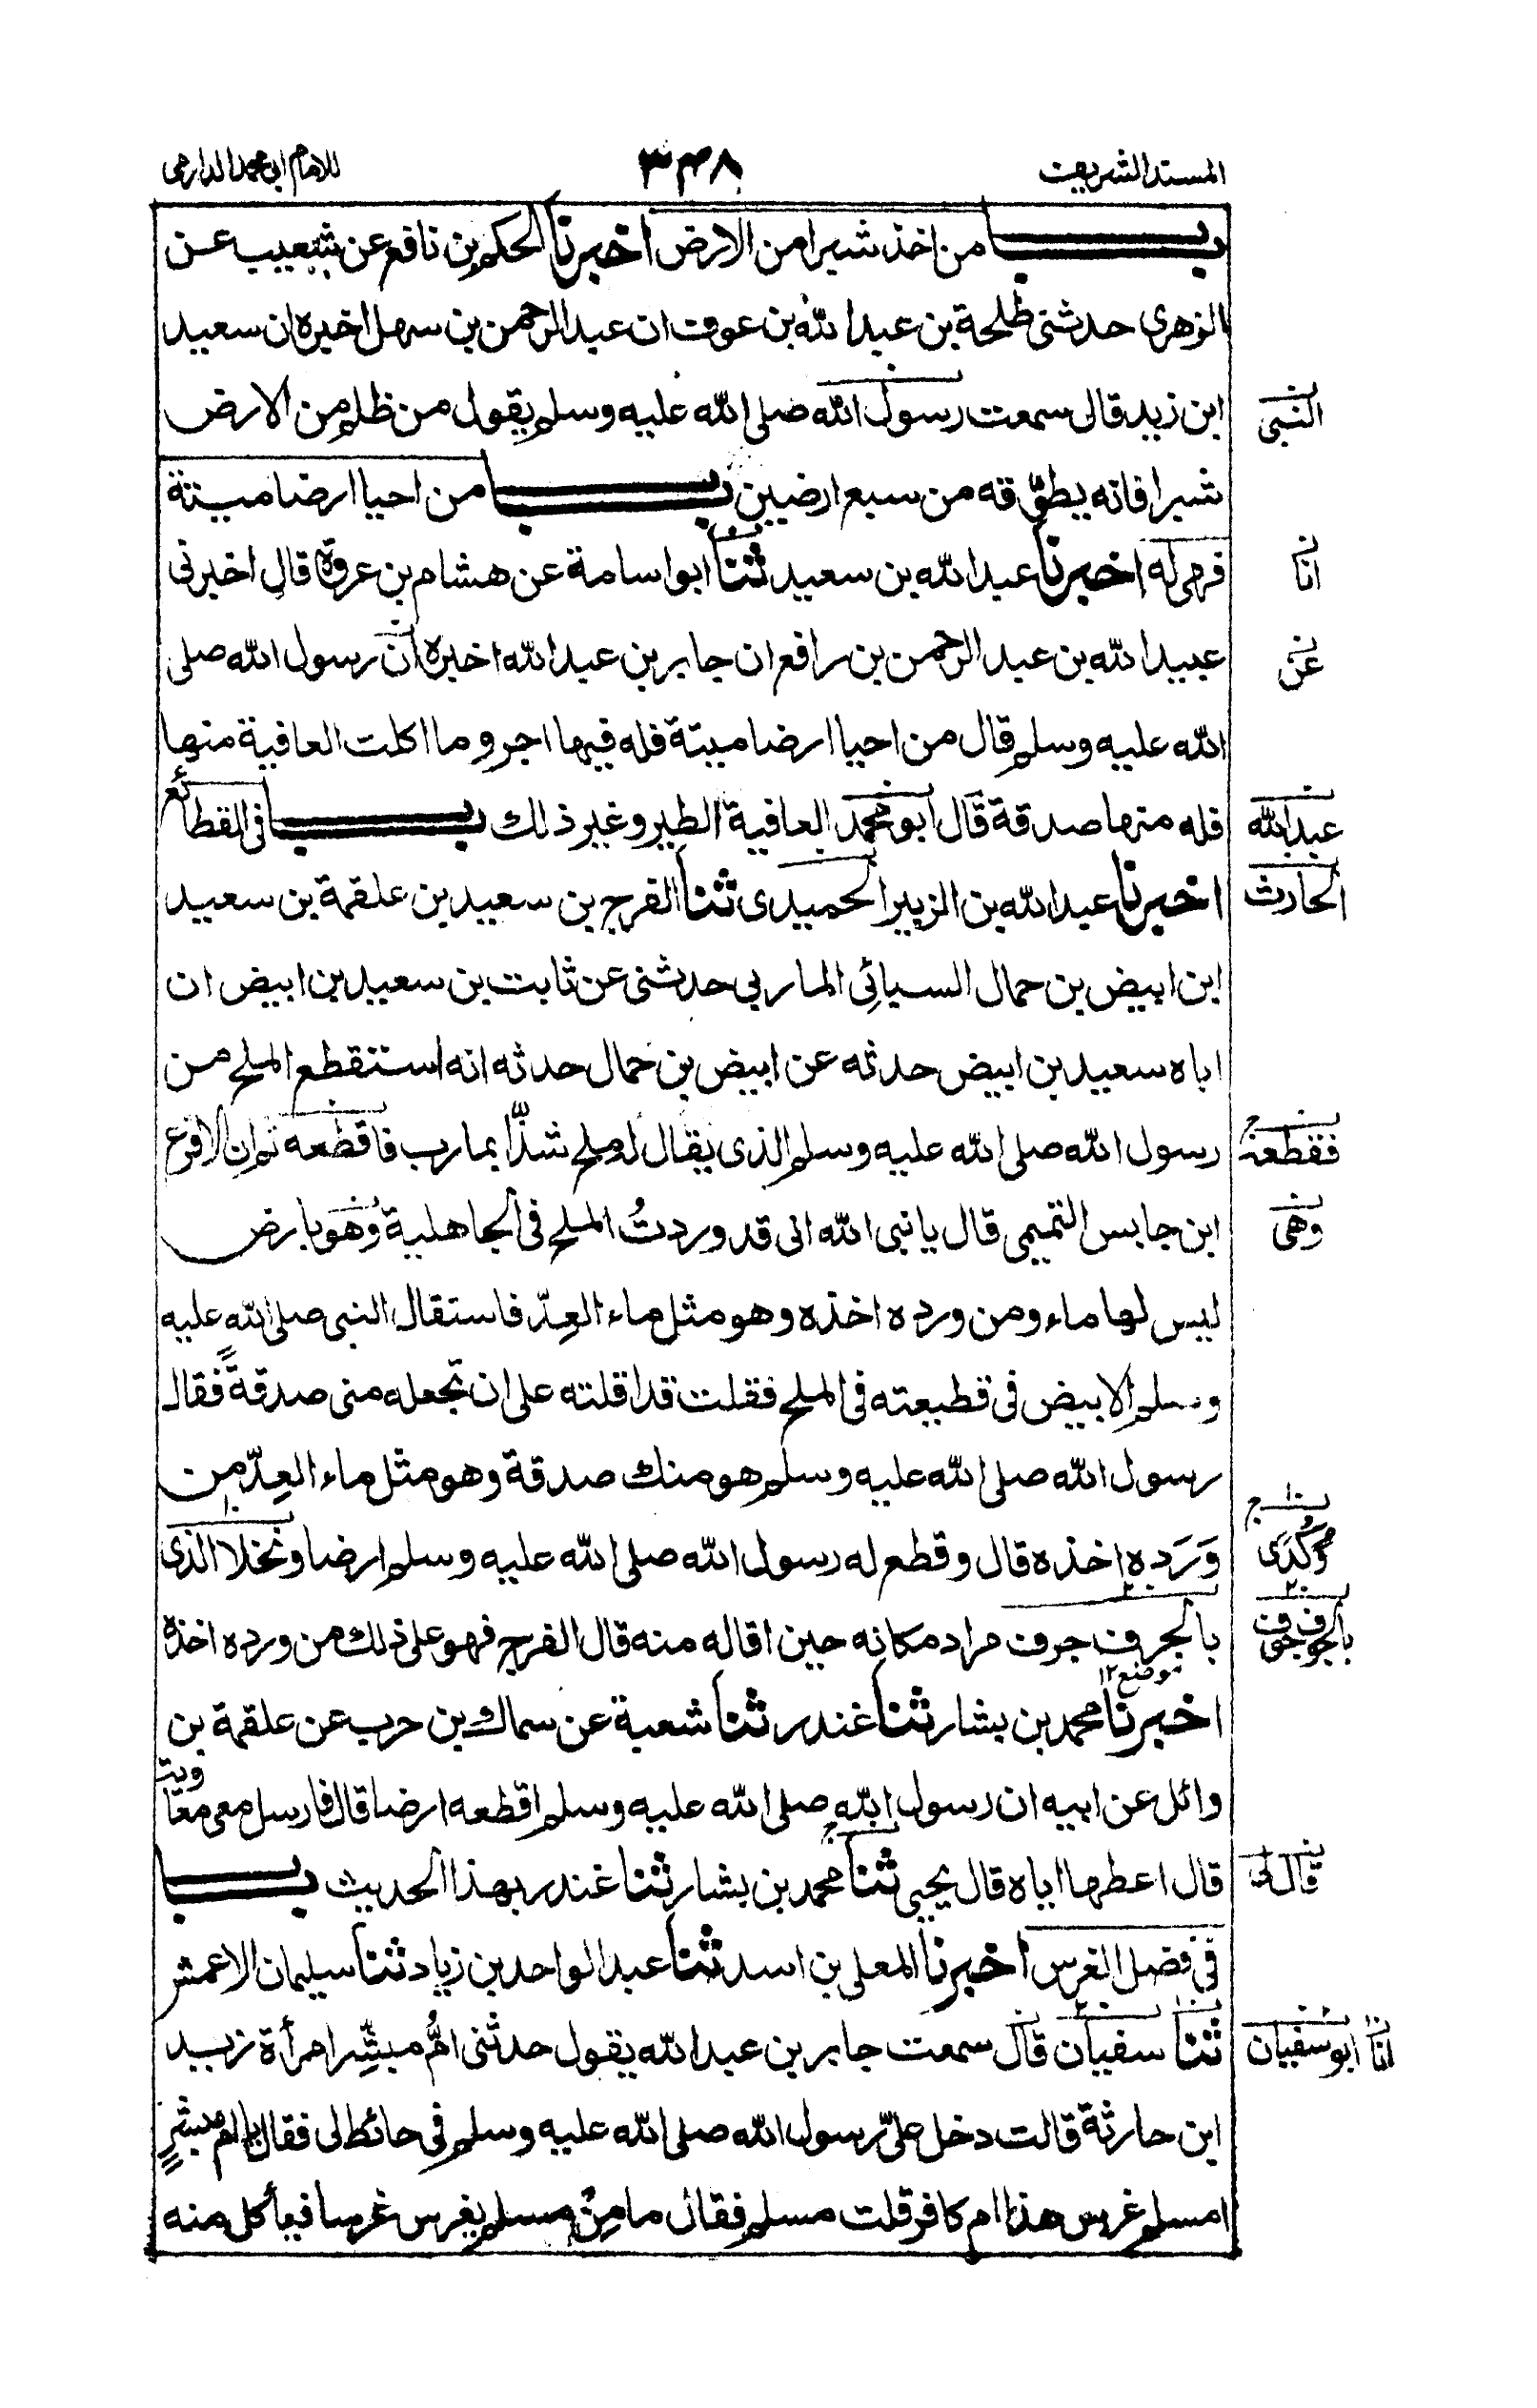 المسند الشريف ٣٤٨ للامام ابى محمد الدارمى
باب من اخذ شبرا من الارض اخبرنا الحكم بن نافع عن شعيب عن
الزهرى حدثنى طلحة بن عبد الله بن عوف ان عبد الرحمن بن سهل اخبره ان سعيد
ابن زيد قال سمعت رسول الله صلى الله عليه وسلم يقول من ظلم من الارض
النبى
شبرا فانه يطوقه من سبع ارضين باب من احيا ارضا ميتة
فهى له اخبرنا عبد الله بن سعيد ثنا ابو اسامة عن هشام بن عروة قال اخبرنى
انا
عبيد الله بن عبد الرحمن بن رافع ان جابر بن عبد الله اخبره ان رسول الله صلى
عن
الله عليه وسلم قال من احيا ارضا ميتة فله فيها اجر وما اكلت العافية منها
فله منها صدقة قال ابو محمد العافية الطير وغير ذلك باب فى القطائع
عبد الله
اخبرنا عبد الله بن الزبير الحميدى ثنا الفرج بن سعيد بن علقمة بن سعيد
الحارث
ابن ابيض بن حمال السبائى الماربى حدثنى عن ثابت بن سعيد بن ابيض ان
اباه سعيد بن ابيض حدثه عن ابيض بن حمال حدثه انه استقطع الملح من
رسول الله صلى الله عليه وسلم الذى يقال له ملح شذّا بمارب فاقطعه ثم ان الاقرع
فقطعه
ابن حابس التميمى قال يا نبى الله انى قد وردتُ الملح فى الجاهلية وهو بارض
وهى
ليس لها ماء ومن ورده اخذه وهو مثل ماء العِدّ فاستقال النبى صلى الله عليه
وسلم الابيض فى قطيعته فى الملح فقلت قد اقلته على ان تجعله منى صدقةً فقال
رسول الله صلى الله عليه وسلم هو منك صدقة وهو مثل ماء العِدّ من
وَرَده اخذه قال وقطع له رسول الله صلى الله عليه وسلم ارضا ونخلا الذى
بالجرف جرف مراد مكانه حين اقاله منه قال الفرج فهو على ذلك من ورده اخذه
موضع ١٢
اخبرنا محمد بن بشار ثنا غندر ثنا شعبة عن سماك بن حرب عن علقمة بن
وائل عن ابيه ان رسول الله صلى الله عليه وسلم اقطعه ارضا قال فارسل معى معاوية
قال اعطها اياه قال يحيى ثنا محمد بن بشار ثنا غندر بهذا الحديث باب
قال لى
فى فضل الغرس اخبرنا المعلى بن اسد ثنا عبد الواحد بن زياد ثنا سليمان الاعمش
ثنا سفيان قال سمعت جابر بن عبد الله يقول حدثنى امُّ مبشّر امرأة زيد
انا ابو سفيان
ابن حارثة قالت دخل علىّ رسول الله صلى الله عليه وسلم فى حائط لى فقال يا ام مبشرٍ
امسلم غرس هذا ام كافر قلت مسلم فقال ما مِن مسلم يغرس غرسا فيأكل منه